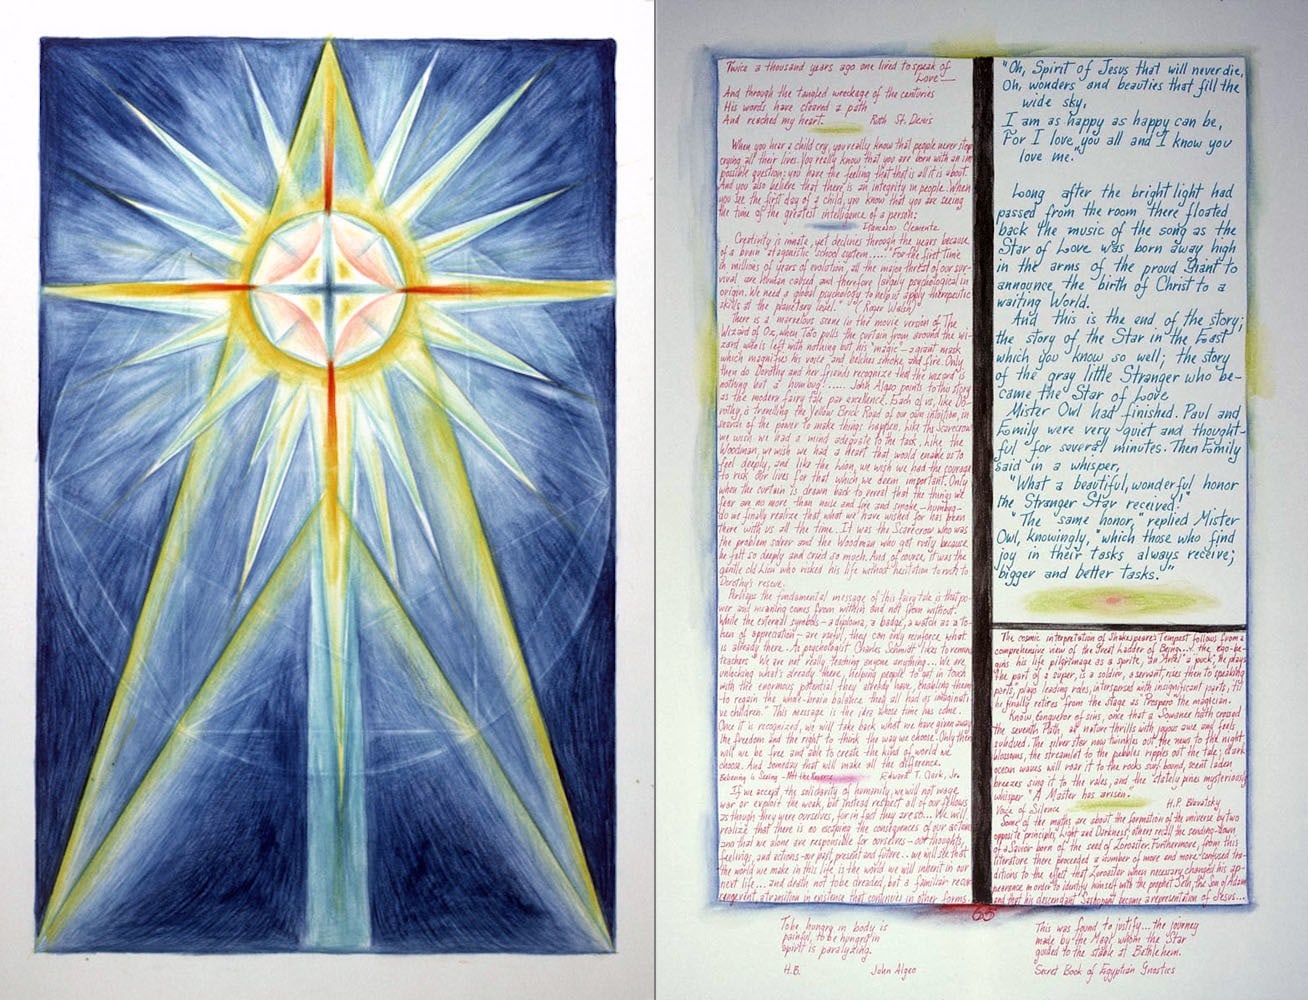 Twice a thousand years ago one lived to speak of
Love—
And through the tangled wreckage of the centuries
His words have cleared a path
And reached my heart. Ruth St. Denis
When you hear a child cry, you really know that people never stop
crying all their lives. You really know that you are born with an im
possible question; you have the feeling that that is all it is about.
And you also believe that there is an integrity in people. When
you see the first day of a child, you know that you are seeing
the time of the greatest intelligence of a person;
Francesco Clemente
Creativity is innate, yet declines through the years because
of a brain "atagonistic" school system..... "For the first time
in millions of years of evolution, all the major threat of our sur-
vival are human caused and therefore largely psychological in
origin. We need a global psychology to help us apply therapeutic
skills at the planetary level." (Roger Walsh)
There is a marvelous scene in the movie version of The
Wizard of Oz, when Toto pulls the curtain from around the wi-
zard who is left with nothing but his "magic" – a giant mask
which magnifies his voice and belches smoke and fire. Only
then do Dorothy and her friends recognize that the wizard is
nothing but a humbug!..... John Algeo points to this story
as the modern fairy tale par excellence. Each of us, like Do-
rothy, is travelling the Yellow Brick Road of our own intuition, in
search of the power to make things happen. Like the Scarecrow
we wish we had a mind adequate to the task, Like the
Woodman, we wish we had a heart that would enable us to
feel deeply, and like the Lion, we wish we had the courage
to risk our lives for that which we deem important. Only
when the curtain is drawn back to reveal that the things we
fear are no more than noise and fire and smoke – humbug –
do we finally realize that what we have wished for has been
there with us all the time. It was the Scarecrow who was
the problem solver and the Woodman who got rusty because
he felt so deeply and cried so much. And, of course, it was the
gentle old Lion who risked his life without hesitation to rush to
Dorothy's rescue.
Perhaps the fundamental message of this fairy tale is that po-
wer and meaning comes from within and not from without.
While the external symbols – a diploma, a badge, a watch as a to-
ken of appreciation – are useful, they can only reinforce what
is already there. As psychologist Charles Schmidt likes to remind
teachers "We are not really teaching anyone anything... We are
unlocking what's already there, helping people to get in touch
with the enormous potential they already have, enabling them
to regain the whole-brain balance they all had as imaginati-
ve children." This message is the idea whose time has come.
Once it is recognized, we will take back what we have given away
the freedom and the right to think the way we choose. Only then
will we be free and able to create the kind of world we
choose. And someday that will make all the difference.
Believing is Seeing – Not the Reverse Edward T. Clark, Jr.
If we accept the solidarity of humanity, we will not wage
war or exploit the weak, but instead respect all of our fellows
as though they were ourselves, for in fact they are so... We will
realize that there is no escaping the consequences of our actions
and that we alone are responsible for ourselves – our thoughts,
feelings, and actions – our past, present and future.. we will see that
the world we make in this life is the world we will inherit in our
next life... and death not to be dreaded, but a familiar recur
rence event, a transition in existence that continues in other forms.
To be hungry in body is
painful, to be hungry in
spirit is paralyzing.
H.B. John Algeo
"Oh, Spirit of Jesus that will never die,
Oh, wonders and beauties that fill the
wide sky,
I am as happy as happy can be,
For I love you all and I know you
love me."
Long after the bright light had
passed from the room there floated
back the music of the song as the
Star of Love was born away high
in the arms of the proud Giant to
announce the birth of Christ to a
waiting World.
And this is the end of the story;
the story of the Star in the East
which you know so well; the story
of the gray little Stranger who be-
came the Star of Love
Mister Owl had finished. Paul and
Emily were very quiet and thought-
ful for several minutes. Then Emily
said in a whisper,
"What a beautiful, wonderful honor
the Stranger Star received!"
"The same honor," replied Mister
Owl, knowingly, "which those who find
joy in their tasks always receive;
bigger and better tasks."
The cosmic interpretation of Shakespeare's Tempest follows from a
comprehensive view of the Great Ladder of Being...: the ego be-
gins his life pilgrimage as a sprite, an "Ariel" a "puck"; he plays
the part of a super, is a soldier, a servant, rises then to "speaking
parts", plays leading roles, interspersed with insignificant parts, 'til
he finally retires from the stage as "Prospero" the magician.
Know, Conqueror of sins, once that a Sowanee hath crossed
the seventh Path, all nature thrills with joyous awe and feels
subdued. The silver star now twinkles out the news to the night
blossoms, the streamlet to the pebbles ripples out the tale; dark
ocean waves will roar it to the rocks surf-bound, scent laden
breezes sing it to the vales, and the stately pines mysteriously
whisper "A Master has arisen.
Voice of Silence H.P. Blavatsky
Some of the myths are about the formation of the universe by two
opposite principles, Light and Darkness; others recall the sending-down
of a Savior born of the seed of Zoroaster. Furthermore, from this
literature there proceeded a number of more and more confused tra-
ditions to the effect that Zoroaster when necessary changed his ap-
pearance in order to identify himself with the prophet Seth, the Son of Adam
and that his descendant Saoshyant became a representation of Jesus...
65
This was found to justify... the journey
made by the Magi whom the Star
guided to the stable at Bethlehem.
Secret Book of Egyptian Gnostics